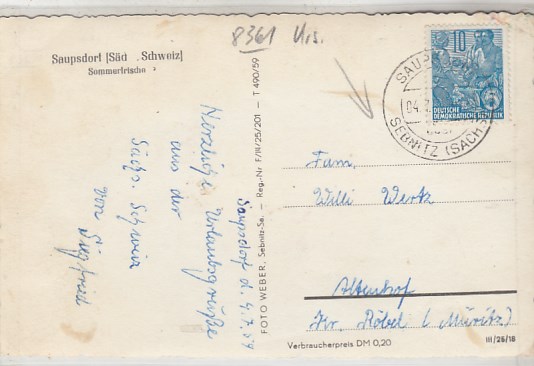 8361 Urs.
Saupsdorf [Säc . Schweiz]
Sommerfrische
Saupsdorf d. 4.7.59
Herzliche Urlaubsgrüße
aus der
Sächs. Schweiz
von Siegfried
FOTO WEBER, Sebnitz-Sa. — Reg.-Nr. F/II/25/201 — T 490/59
10
DEUTSCHE
DEMOKRATISCHE REPUBLIK
SAUPS
04.
SEBNITZ (SACHS
Fam.
Willi Wertz
Altenhof
Kr. Röbel (Müritz)
Verbraucherpreis DM 0,20
III/26/18